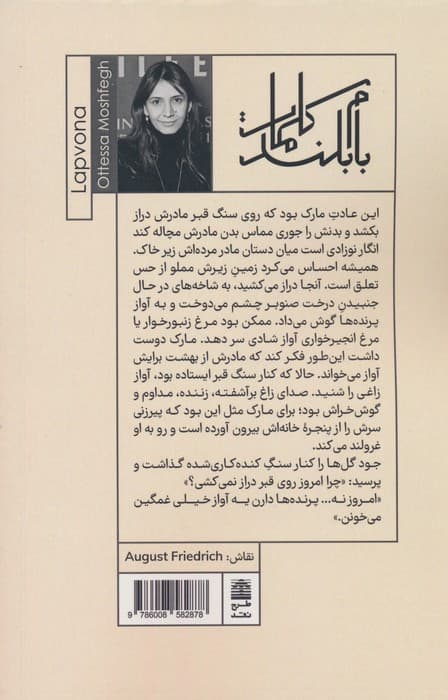 Lapvona
Ottessa Moshfegh
این عادتِ مارک بود که روی سنگ قبر مادرش دراز
بکشد و بدنش را جوری مماس بدن مادرش مچاله کند
انگار نوزادی است میان دستان مادر مرده‌اش زیر خاک.
همیشه احساس می‌کرد زمینِ زیرش مملو از حس
تعلق است. آنجا دراز می‌کشید، به شاخه‌های در حال
جنبیدنِ درخت صنوبر چشم می‌دوخت و به آواز
پرنده‌ها گوش می‌داد. ممکن بود مرغ زنبورخوار یا
مرغ انجیرخواری آواز شادی سر دهد. مارک دوست
داشت این‌طور فکر کند که مادرش از بهشت برایش
آواز می‌خواند. حالا که کنار سنگ قبر ایستاده بود، آواز
زاغی را شنید. صدای زاغ برآشفته، زننده، مداوم و
گوش‌خراش بود؛ برای مارک مثل این بود که پیرزنی
سرش را از پنجرهٔ خانه‌اش بیرون آورده است و رو به او
غرولند می‌کند.
جود گل‌ها را کنار سنگِ کنده‌کاری‌شده گذاشت و
پرسید: «چرا امروز روی قبر دراز نمی‌کشی؟»
«امروز نه... پرنده‌ها دارن یه آواز خیلی غمگین
می‌خونن.»
نقاش: August Friedrich
9 786008 582878
طرح
نقد